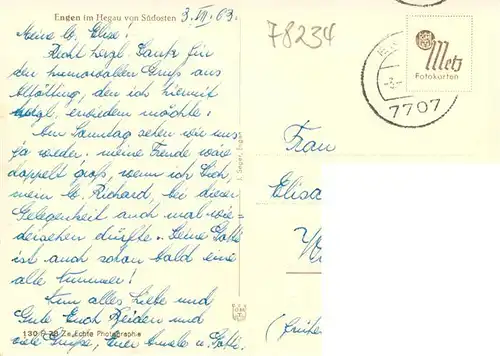 Engen im Hegau von Südosten
3. VII. 63.
Meine lb. Elise!
Recht herzl. Dank für
den humorvollen Gruss aus
Altötting, den ich hiermit
herzl. erwidern möchte!
Am Sonntag sehen wir uns
ja wieder; meine Freude wäre
doppelt gross, wenn ich Dich,
mein lb. Richard, bei dieser
Gelegenheit auch mal wie-
dersehen dürfte. Deine Gotti
ist auch schon bald eine
alte Nummer!
Nun alles Liebe und
Gute Euch Beiden und
viele Grüsse, Euer u. Gotti.
130 Echte Photographie
78234
Metz
Fotokarten
7707
Frau
Elisa